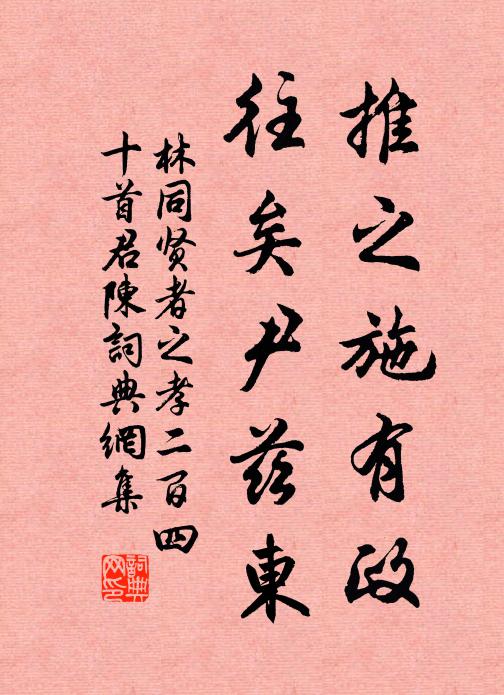 推之施有政
往矣尹茲東
林同贤者之孝二百四
十首君陳詞典網集
詞典网印